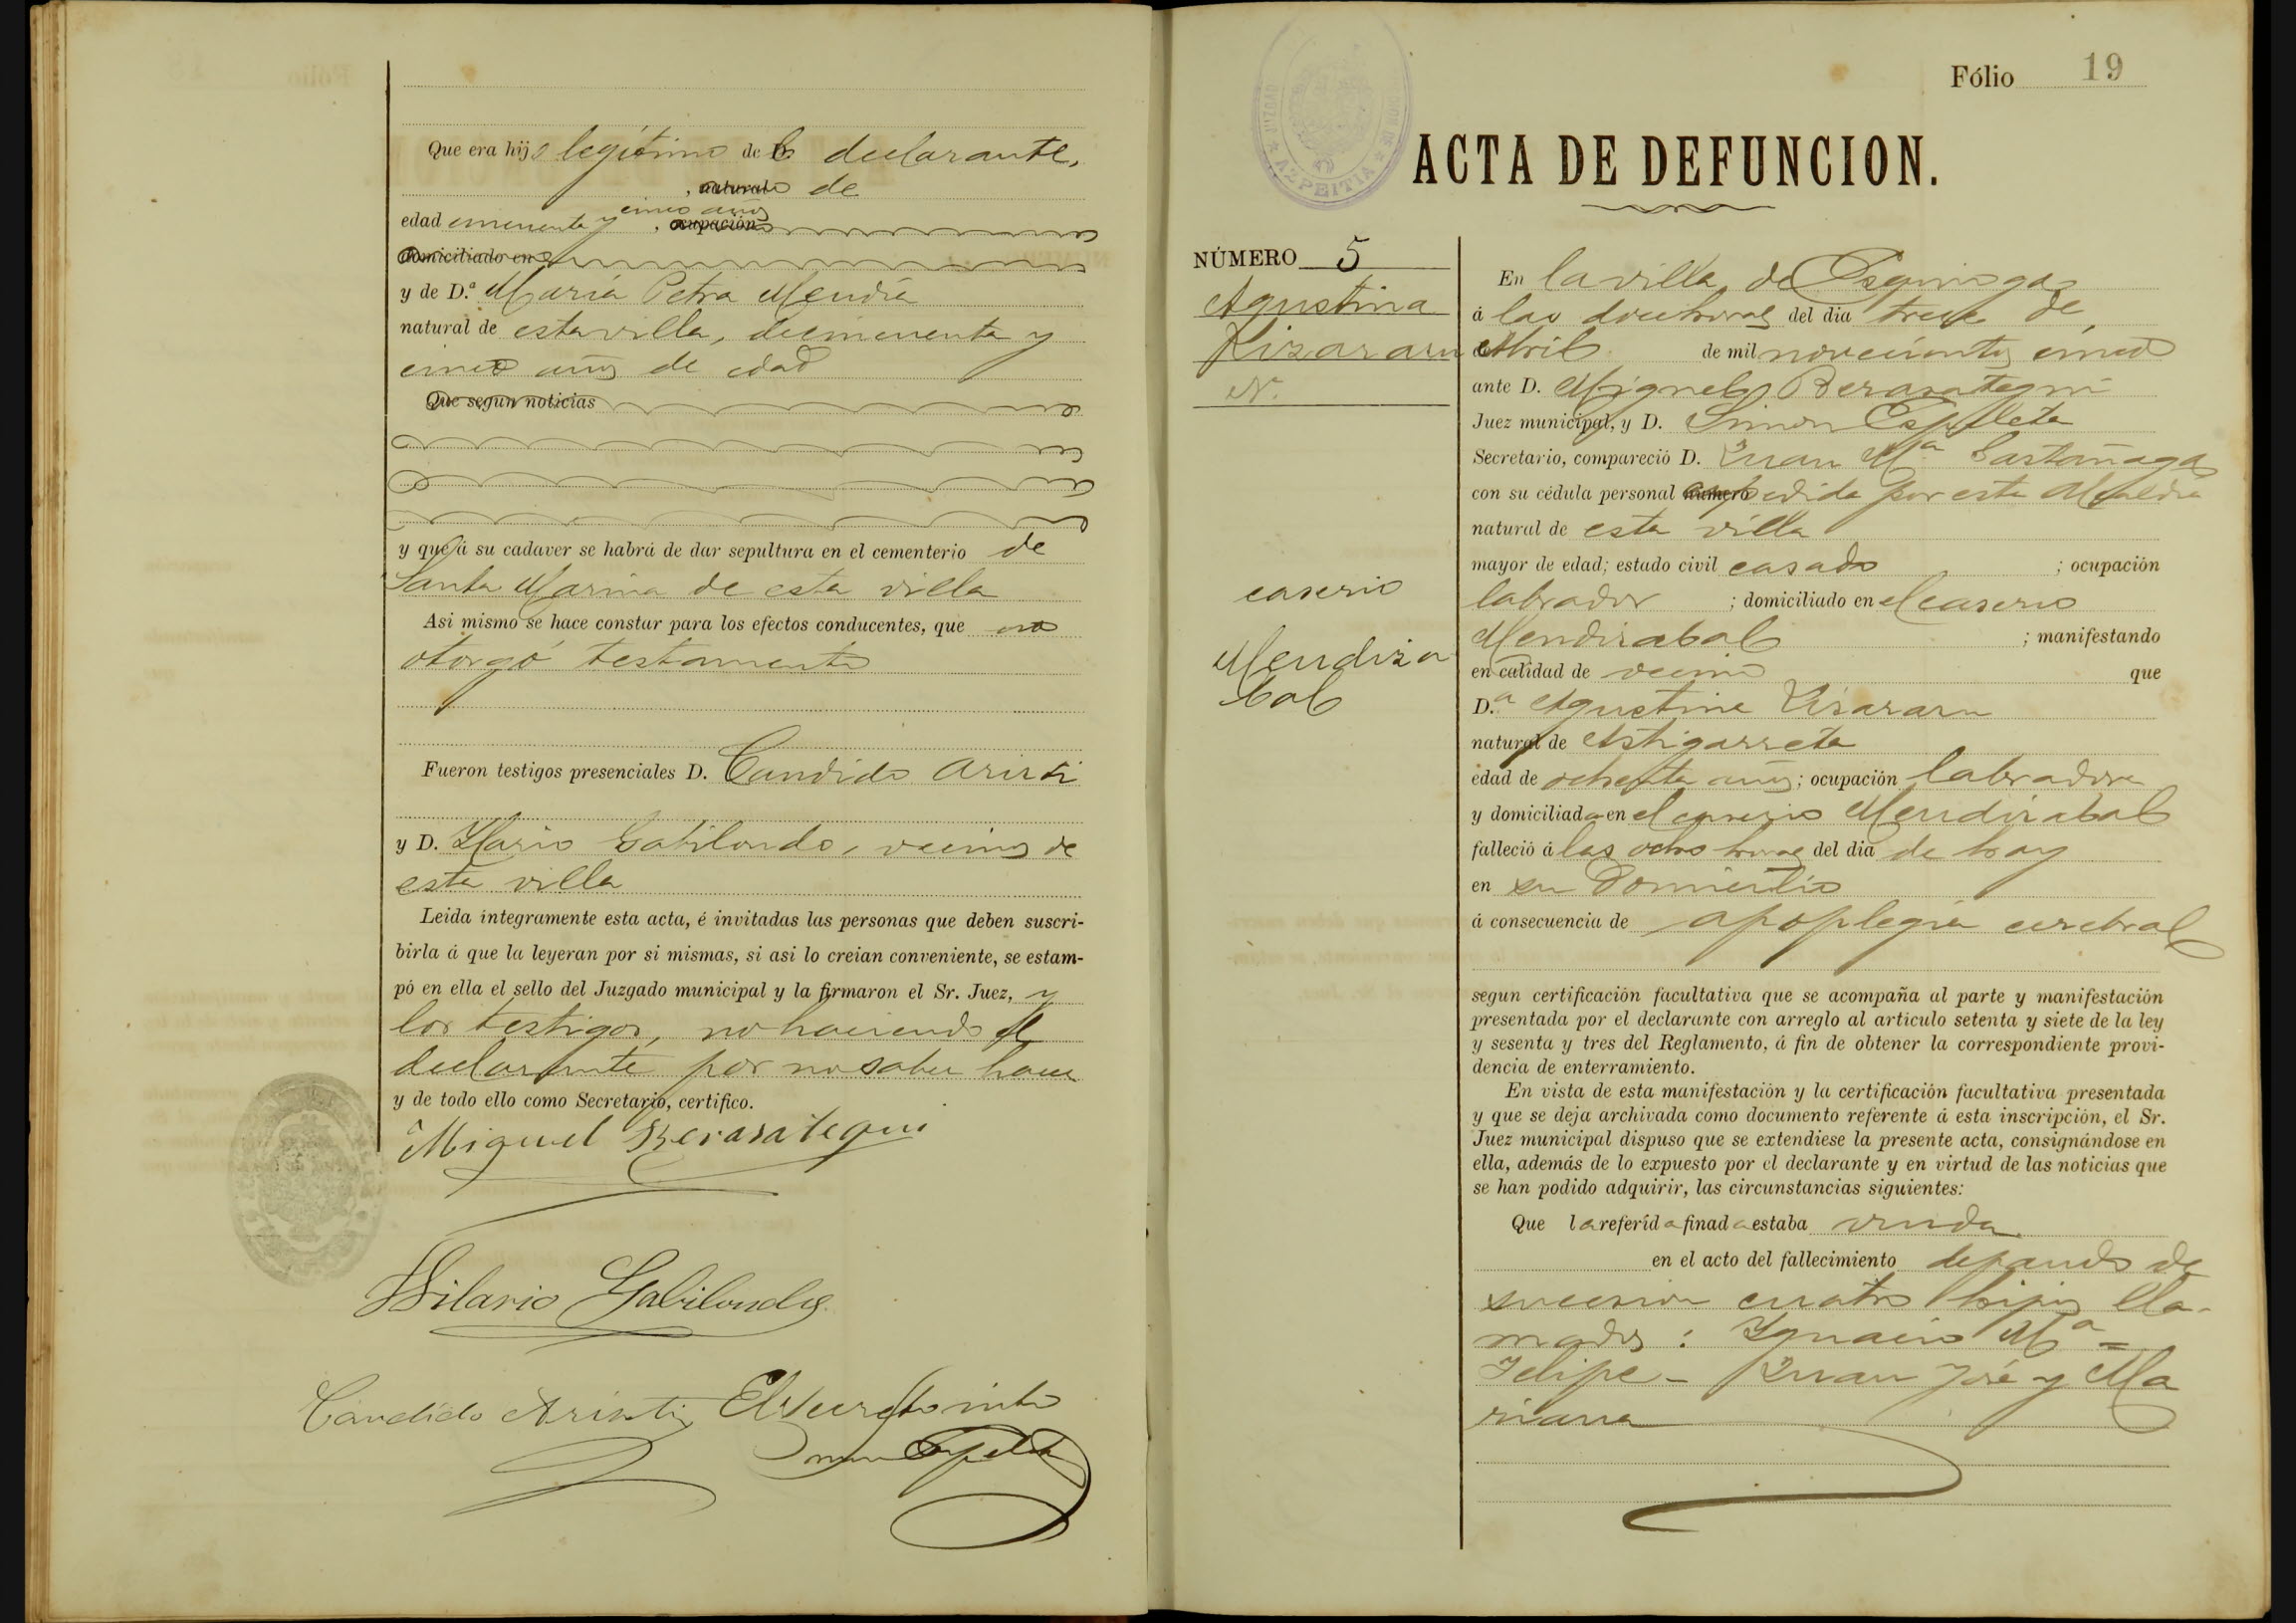 Que era hijo legítimo de l declarante,
, natural de
edad cincuenta y cinco años, ocupación
domiciliado en
y de D.ª María Petra Mendía
natural de esta villa, de cincuenta y
cinco años de edad
Que segun noticias
y que á su cadaver se habrá de dar sepultura en el cementerio de
Santa Marina de esta villa
Asi mismo se hace constar para los efectos conducentes, que no
otorgó testamento
Fueron testigos presenciales D. Candido Aristi
y D. Ilario Gabilondo, vecinos de
esta villa
Leida íntegramente esta acta, é invitadas las personas que deben suscri-
birla á que la leyeran por si mismas, si asi lo creian conveniente, se estam-
pó en ella el sello del Juzgado municipal y la firmaron el Sr. Juez, y
los testigos, no haciendo el
declarante por no saber hacer
y de todo ello como Secretario, certifico.
Miguel Berasategui
Hilario Gabilondo
Candido Aristi
Fólio 19
AZPEITIA
ACTA DE DEFUNCION.
NÚMERO 5
Agustina
Lizararu
N.
caserio
Mendiza
bal
En la villa de Ezquioga
á las doce horas del dia trece de
Abril de mil novecientos cinco
ante D. Miguel Berasategui
Juez municipal, y D. Simon Espelleta
Secretario, compareció D. Juan M.ª Gastañaga
con su cédula personal número expedida por esta Alcaldia
natural de esta villa
mayor de edad; estado civil casado ; ocupación
labrador ; domiciliado en el caserio
Mendizabal ; manifestando
en calidad de vecino que
D.ª Agustina Lizararu
natural de Astigarreta
edad de ochenta años; ocupación labradora
y domiciliada en el caserio Mendizabal
falleció á las ocho horas del dia de hoy
en su Domicilio
á consecuencia de apoplegia cerebral
segun certificación facultativa que se acompaña al parte y manifestación
presentada por el declarante con arreglo al artículo setenta y siete de la ley
y sesenta y tres del Reglamento, á fin de obtener la correspondiente provi-
dencia de enterramiento.
En vista de esta manifestación y la certificación facultativa presentada
y que se deja archivada como documento referente á esta inscripción, el Sr.
Juez municipal dispuso que se extendiese la presente acta, consignándose en
ella, además de lo expuesto por el declarante y en virtud de las noticias que
se han podido adquirir, las circunstancias siguientes:
Que la referída finada estaba viuda
en el acto del fallecimiento dejando de
sucesion cuatro hijos lla-
mados: Ignacio M.ª =
Felipe - Juan José y Ma
riana